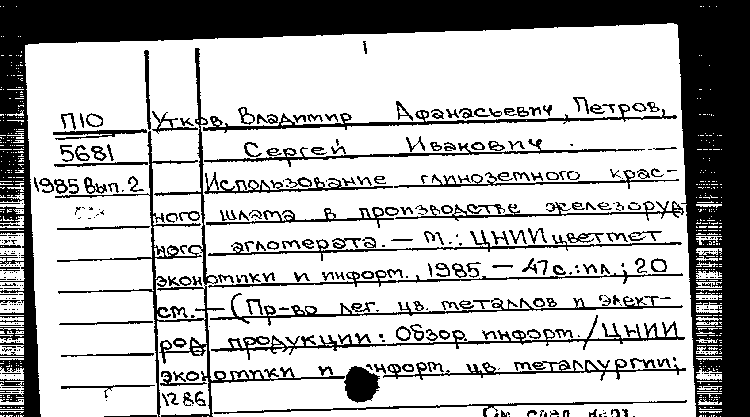 1
П10 Утков, Владимир Афанасьевич, Петров,
5681 Сергей Иванович.
1985 Вып. 2 Использование глиноземного крас-
ного шлама в производстве железоруд
ного агломерата. — М.: ЦНИИцветмет
экономики и информ., 1985. — 47с.: ил.; 20
см. — (Пр-во лег. цв. металлов и элект-
род продукции: Обзор. информ. / ЦНИИ
экономики и информ. цв. металлургии;
1286
См. след. карт.